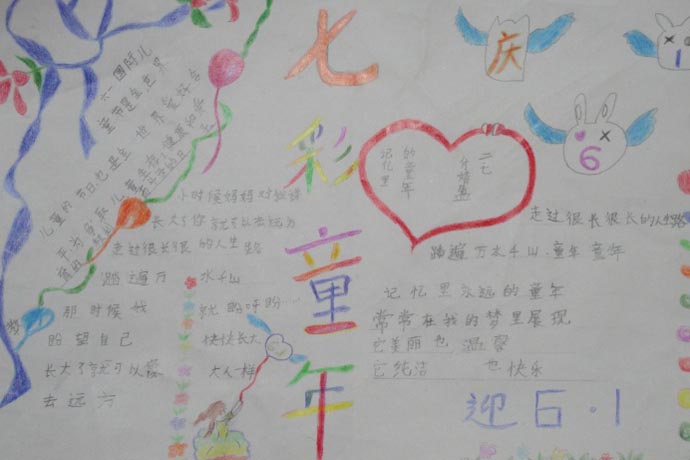 七彩童年
庆
6
1
六一国际儿
童节是全世界
儿童的节日也是全世界爱好合
小时候妈妈对我说
长大了你就可以去远方
走过很长很长的人生路
踏遍万水千山
那时候我就盼呀盼…
盼望自己快快长大
长大了就可以像大人一样
去远方
记忆里
的童年
走过很长很长的人生路
踏遍万水千山·童年童年
记忆里永远的童年
常常在我的梦里展现
它美丽也温馨
它纯洁也快乐
迎6·1